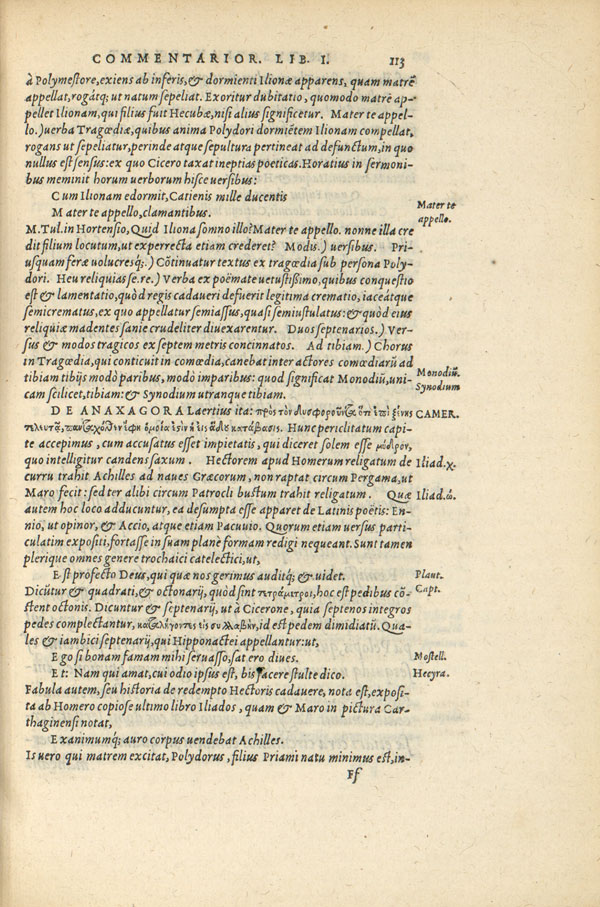 COMMENTARIOR. LIB. I. 113
à Polymestore, exiens ab inferis, & dormienti Ilionæ apparens, quam matrẽ
appellat, rogátq; ut natum sepeliat. Exoritur dubitatio, quomodo matrẽ ap-
pellet Ilionam, qui filius fuit Hecubæ, nisi alius significetur. Mater te appel-
lo.) uerba Tragœdiæ, quibus anima Polydori dormiẽtem Ilionam compellat,
rogans ut sepeliatur, perinde atque sepultura pertineat ad defunctum, in quo
nullus est sensus: ex quo Cicero taxat ineptias poëticas. Horatius in sermoni-
bus meminit horum uerborum hisce uersibus:
Cum Ilionam edormit, Catienis mille ducentis
Mater te appello, clamantibus.
Mater te
appello.
M. Tul. in Hortensio, Quid Iliona somno illo? Mater te appello. nonne illa cre
dit filium locutum, ut experrecta etiam crederet? Modis.) uersibus. Pri-
usquam feræ uolucresq;.) Cõtinuatur textus ex tragœdia sub persona Poly-
dori. Heu reliquias se. re.) Verba ex poëmate uetustissimo, quibus conquestio
est & lamentatio, quòd regis cadaueri defuerit legitima crematio, iaceátque
semicrematus, ex quo appellatur semiassus, quasi semiustulatus: & quòd eius
reliquiæ madentes sanie crudeliter diuexarentur. Duos septenarios.) Ver-
sus & modos tragicos ex septem metris concinnatos. Ad tibiam.) Chorus
in Tragœdia, qui conticuit in comœdia, canebat inter actores comœdiarũ ad
tibiam tibijs modò paribus, modò imparibus: quod significat Monodiũ, uni-
cam scilicet, tibiam: & Synodium utranque tibiam.
Monodiũ.
Synodium
DE ANAXAGORA Laertius ita: πρὸς τὸν δυσφοροῦντα ὅτι ἐπὶ ξένης
τελευτᾷ, πανταχόθεν ἔφη ὁμοία ἐςὶν ἡ εἰς ᾅδε κατάβασις. Hunc periclitatum capi-
te accepimus, cum accusatus esset impietatis, qui diceret solem esse μύδρον,
quo intelligitur candens saxum. Hectorem apud Homerum religatum de
curru trahit Achilles ad naues Græcorum, non raptat circum Pergama, ut
Maro fecit: sed ter alibi circum Patrocli bustum trahit religatum. Quæ
autem hoc loco adducuntur, ea desumpta esse apparet de Latinis poëtis: En-
nio, ut opinor, & Accio, atque etiam Pacuuio. Quorum etiam uersus parti-
culatim expositi, fortasse in suam planè formam redigi nequeant. Sunt tamen
plerique omnes genere trochaici catelectici, ut,
CAMER.
Iliad. χ.
Iliad. ω.
Est profecto Deus, qui quæ nos gerimus auditq; & uidet.
Plaut.
Capt.
Dicũtur & quadrati, & octonarij, quòd sint τετράμετροι, hoc est pedibus cõ-
stent octonis. Dicuntur & septenarij, ut à Cicerone, quia septenos integros
pedes complectantur, καταλήγοντες εἰς συλλαβὴν, id est pedem dimidiatũ. Qua-
les & iambici septenarij, qui Hipponactei appellantur: ut,
Ego si bonam famam mihi seruasso, sat ero diues.
Mostell.
Et: Nam qui amat, cui odio ipsus est, bis facere stulte dico.
Hecyra.
Fabula autem, seu historia de redempto Hectoris cadauere, nota est, exposi-
ta ab Homero copiose ultimo libro Iliados, quam & Maro in pictura Car-
thaginensi notat,
Exanimumq; auro corpus uendebat Achilles.
Is uero qui matrem excitat, Polydorus, filius Priami natu minimus est, in-
Ff